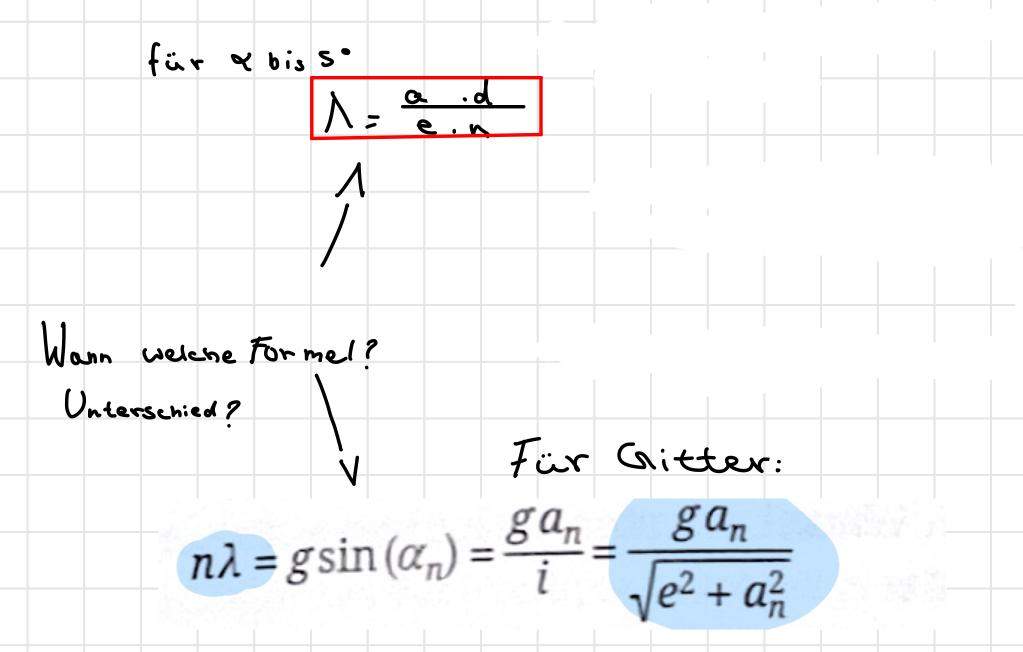 für α bis 5°
λ = a · d / e · n
Wann welche Formel?
Unterschied?
Für Gitter:
nλ = g sin(αₙ) = gaₙ / i = gaₙ / √(e² + aₙ²)